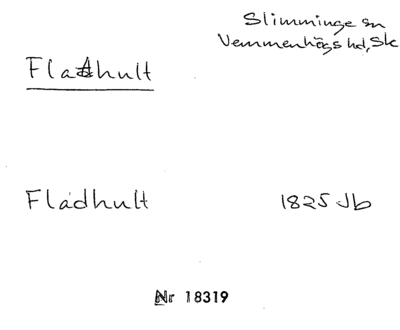 Slimminge sn
Vemmenhögs hd, Sk
Flathult
Fladhult 1825 Jb
Nr 18319